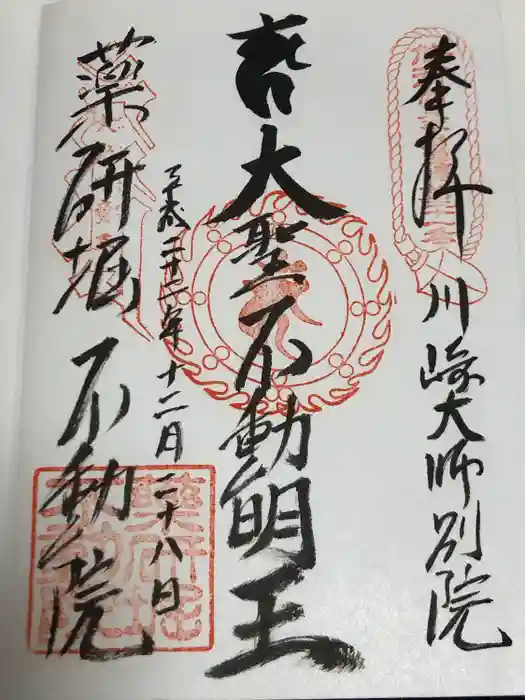 奉拝 川崎大師別院
大聖不動明王
平成二十二年十二月二十八日
薬研堀不動院
薬研堀
不動院